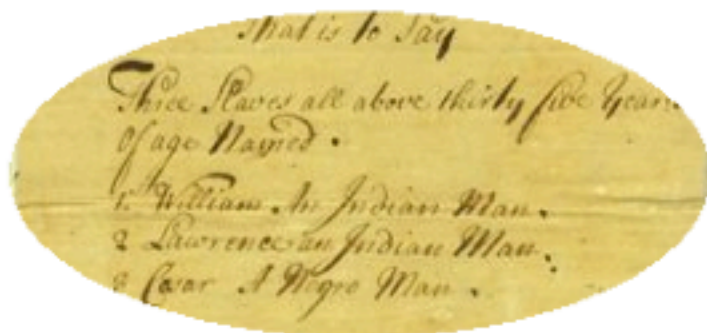 that is to Say
Three Slaves all above thirty five Years
Of age Named.
1. William An Indian Man.
2 Lawrence an Indian Man.
3 Cesar A Negro Man.